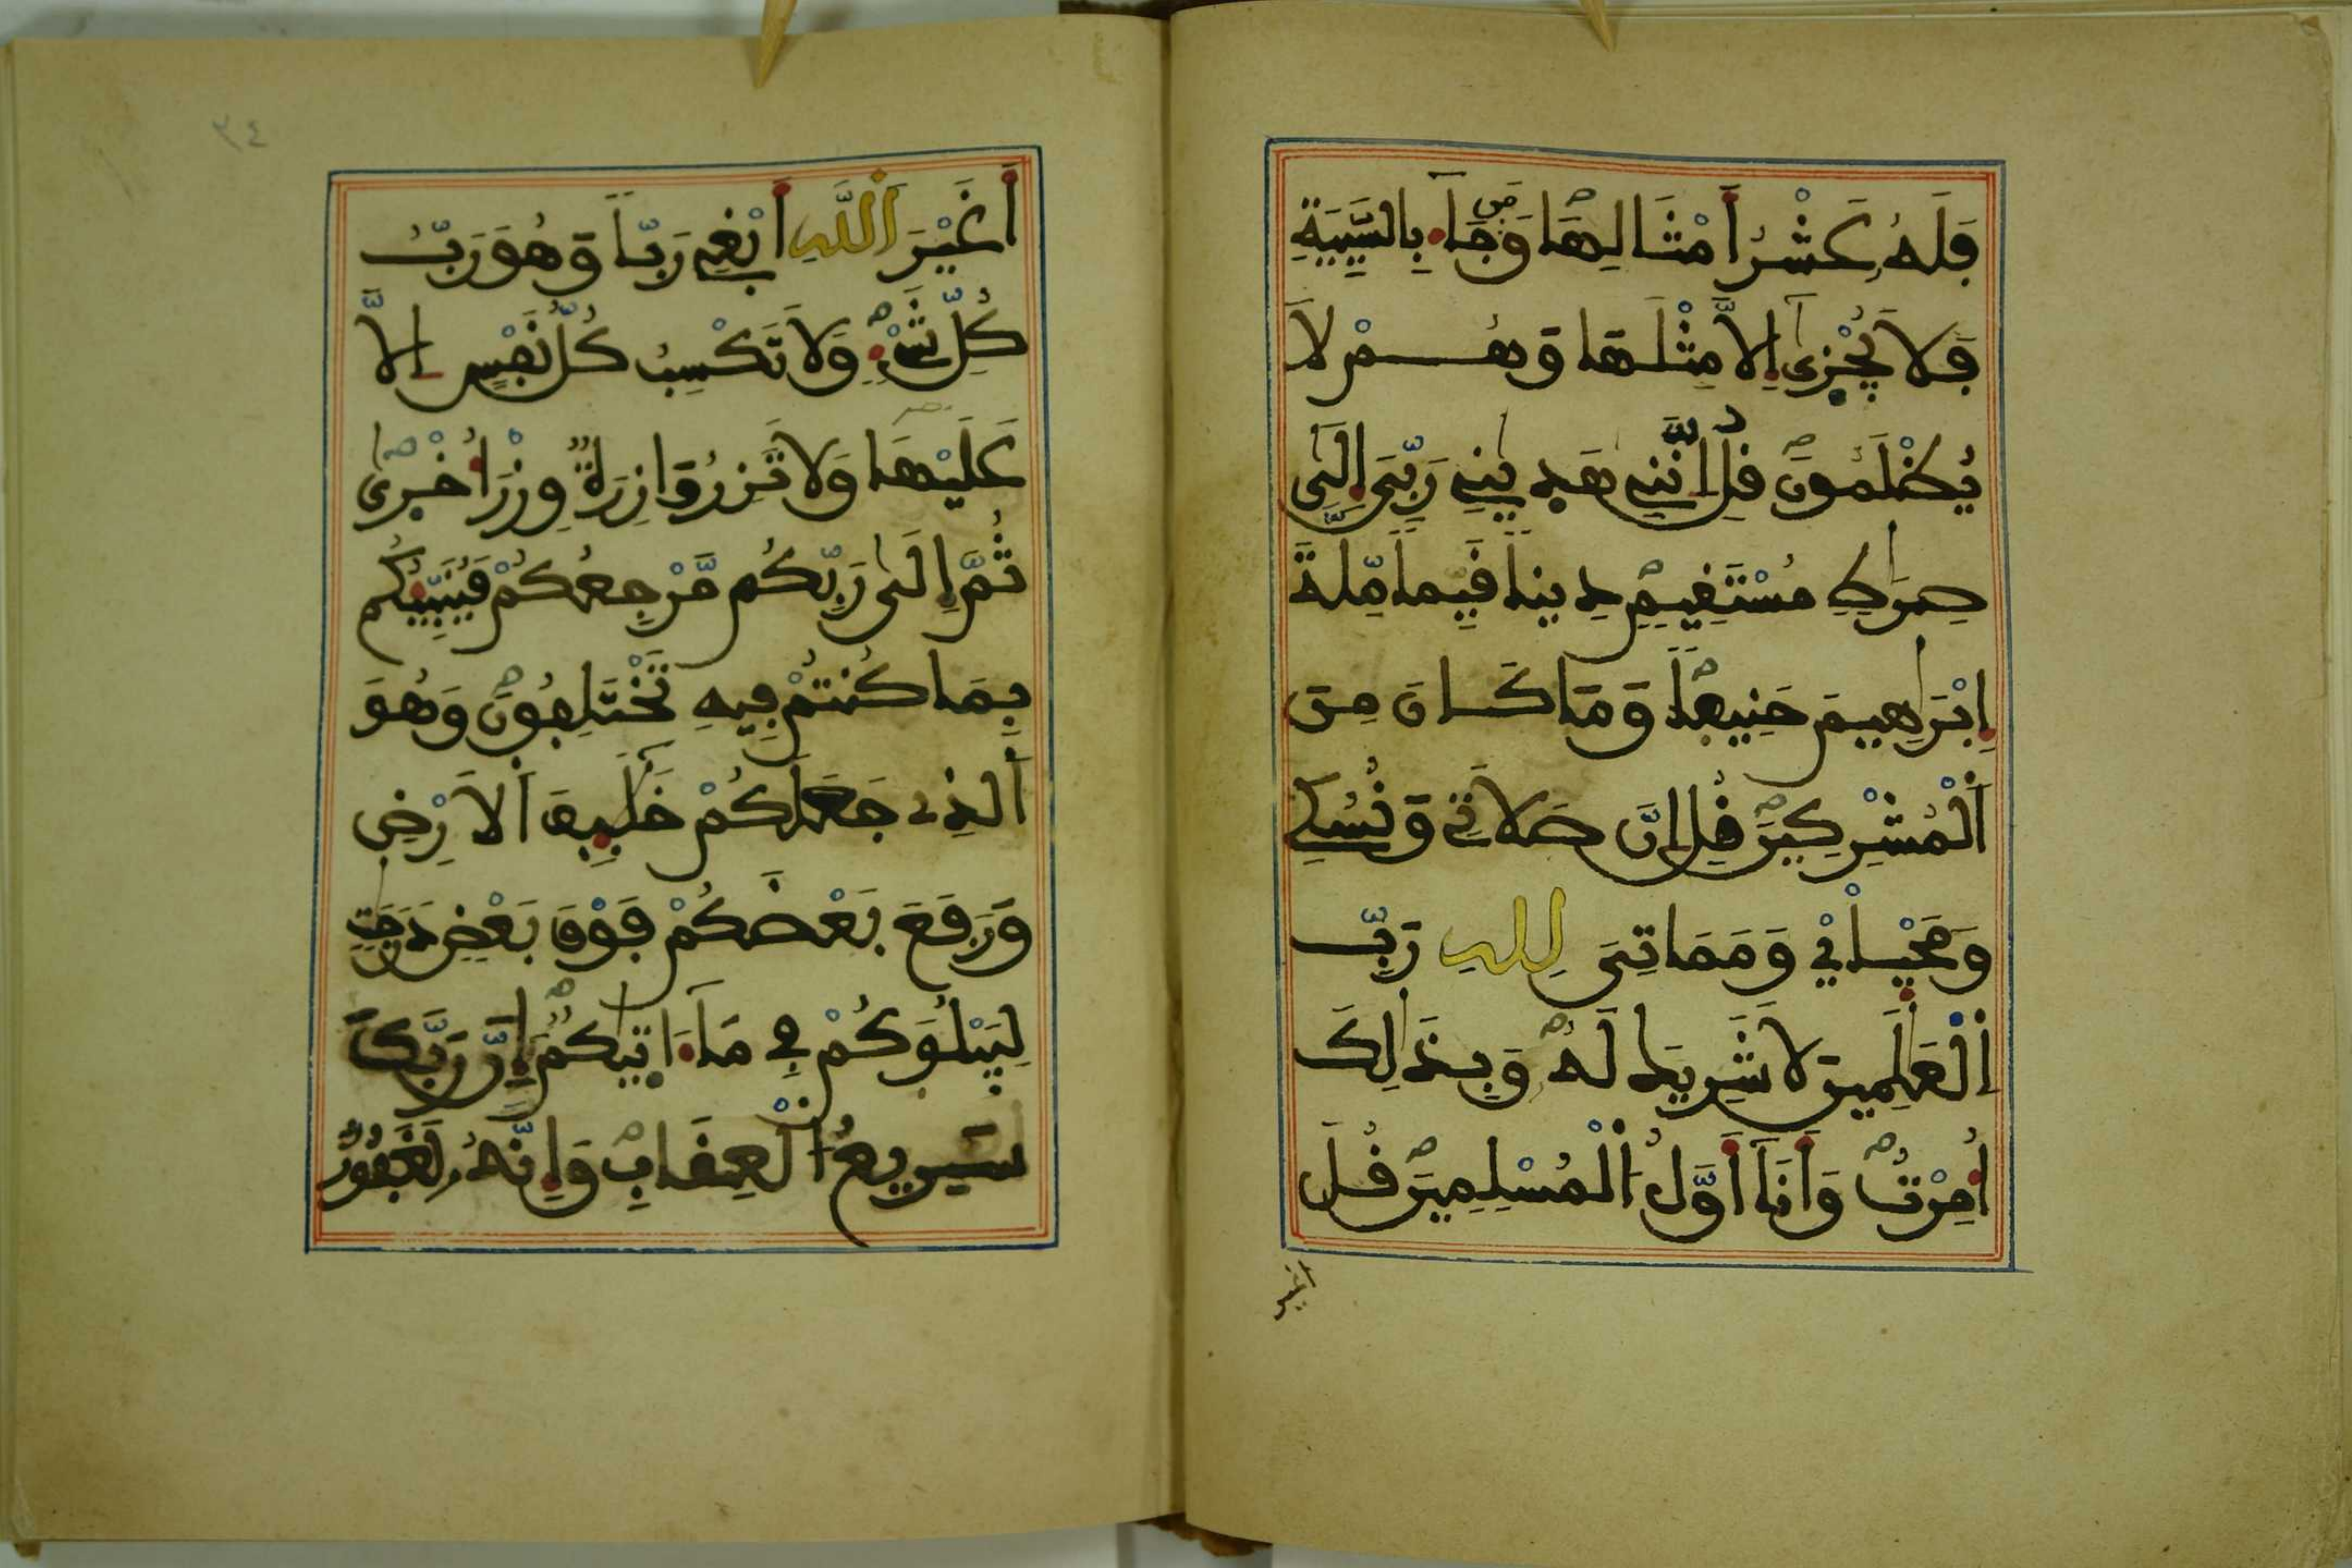 فَلَهُ عَشْرُ أَمْثَالِهَا وَمَن جَآءَ بِالسَّيِّئَةِ
فَلَا يُجْزَىٰٓ إِلَّا مِثْلَهَا وَهُمْ لَا
يُظْلَمُونَ قُلْ إِنَّنِي هَدَيٰنِي رَبِّيَ إِلَىٰ
صِرَٰطٍ مُّسْتَقِيمٍ دِيناً قَيِّماً مِّلَّةَ
إِبْرَٰهِيمَ حَنِيفاً وَمَا كَانَ مِنَ
اَ۬لْمُشْرِكِينَ قُلْ إِنَّ صَلَاتِي وَنُسُكِي
وَمَحْيَآيْ وَمَمَاتِيَ لِلهِ رَبِّ
اِ۬لْعَٰلَمِينَ لَا شَرِيكَ لَهُ وَبِذَٰلِكَ
أُمِرْتُ وَأَنَآ أَوَّلُ اُ۬لْمُسْلِمِينَ قُلَ
أَغَيْرَ
أَغَيْرَ اَ۬للَّهِ أَبْغِي رَبّاً وَهُوَ رَبُّ
كُلِّ شَيْءٍ وَلَا تَكْسِبُ كُلُّ نَفْسٍ إِلَّا
عَلَيْهَا وَلَا تَزِرُ وَازِرَةٌ وِزْرَ أُخْرَىٰ
ثُمَّ إِلَىٰ رَبِّكُم مَّرْجِعُكُمْ فَيُنَبِّئُكُم
بِمَا كُنتُمْ فِيهِ تَخْتَلِفُونَ وَهُوَ
اَ۬لذِي جَعَلَكُمْ خَلَٰٓئِفَ اَ۬لَارْضِ
وَرَفَعَ بَعْضَكُمْ فَوْقَ بَعْضٍ دَرَجَٰتٍ
لِّيَبْلُوَكُمْ فِي مَآ ءَاتَيٰكُمُ إِنَّ رَبَّكَ
سَرِيعُ اُ۬لْعِقَابِ وَإِنَّهُ لَغَفُورٌ
٣٤